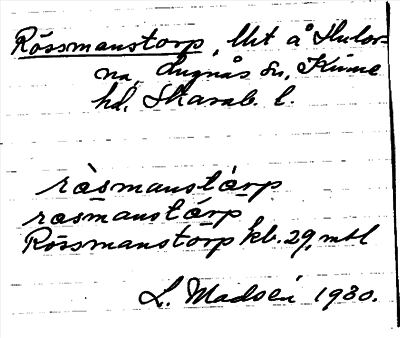 Rössmanstorp, lht å Stulor-
na, Lugnås sn, Kinne
hd, Skarab. l.
ròsmanstárp
rosmanstárp
Rössmanstorp kb. 29, mtl
L. Madsén 1930.